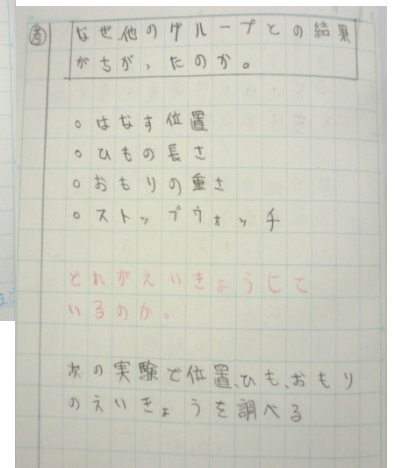 なぜ他のグループとの結果
がちがったのか。
○はなす位置
○ひもの長さ
○おもりの重さ
○ストップウォッチ
どれがえいきょうして
いるのか。
次の実験で位置、ひも、おもり
のえいきょうを調べる